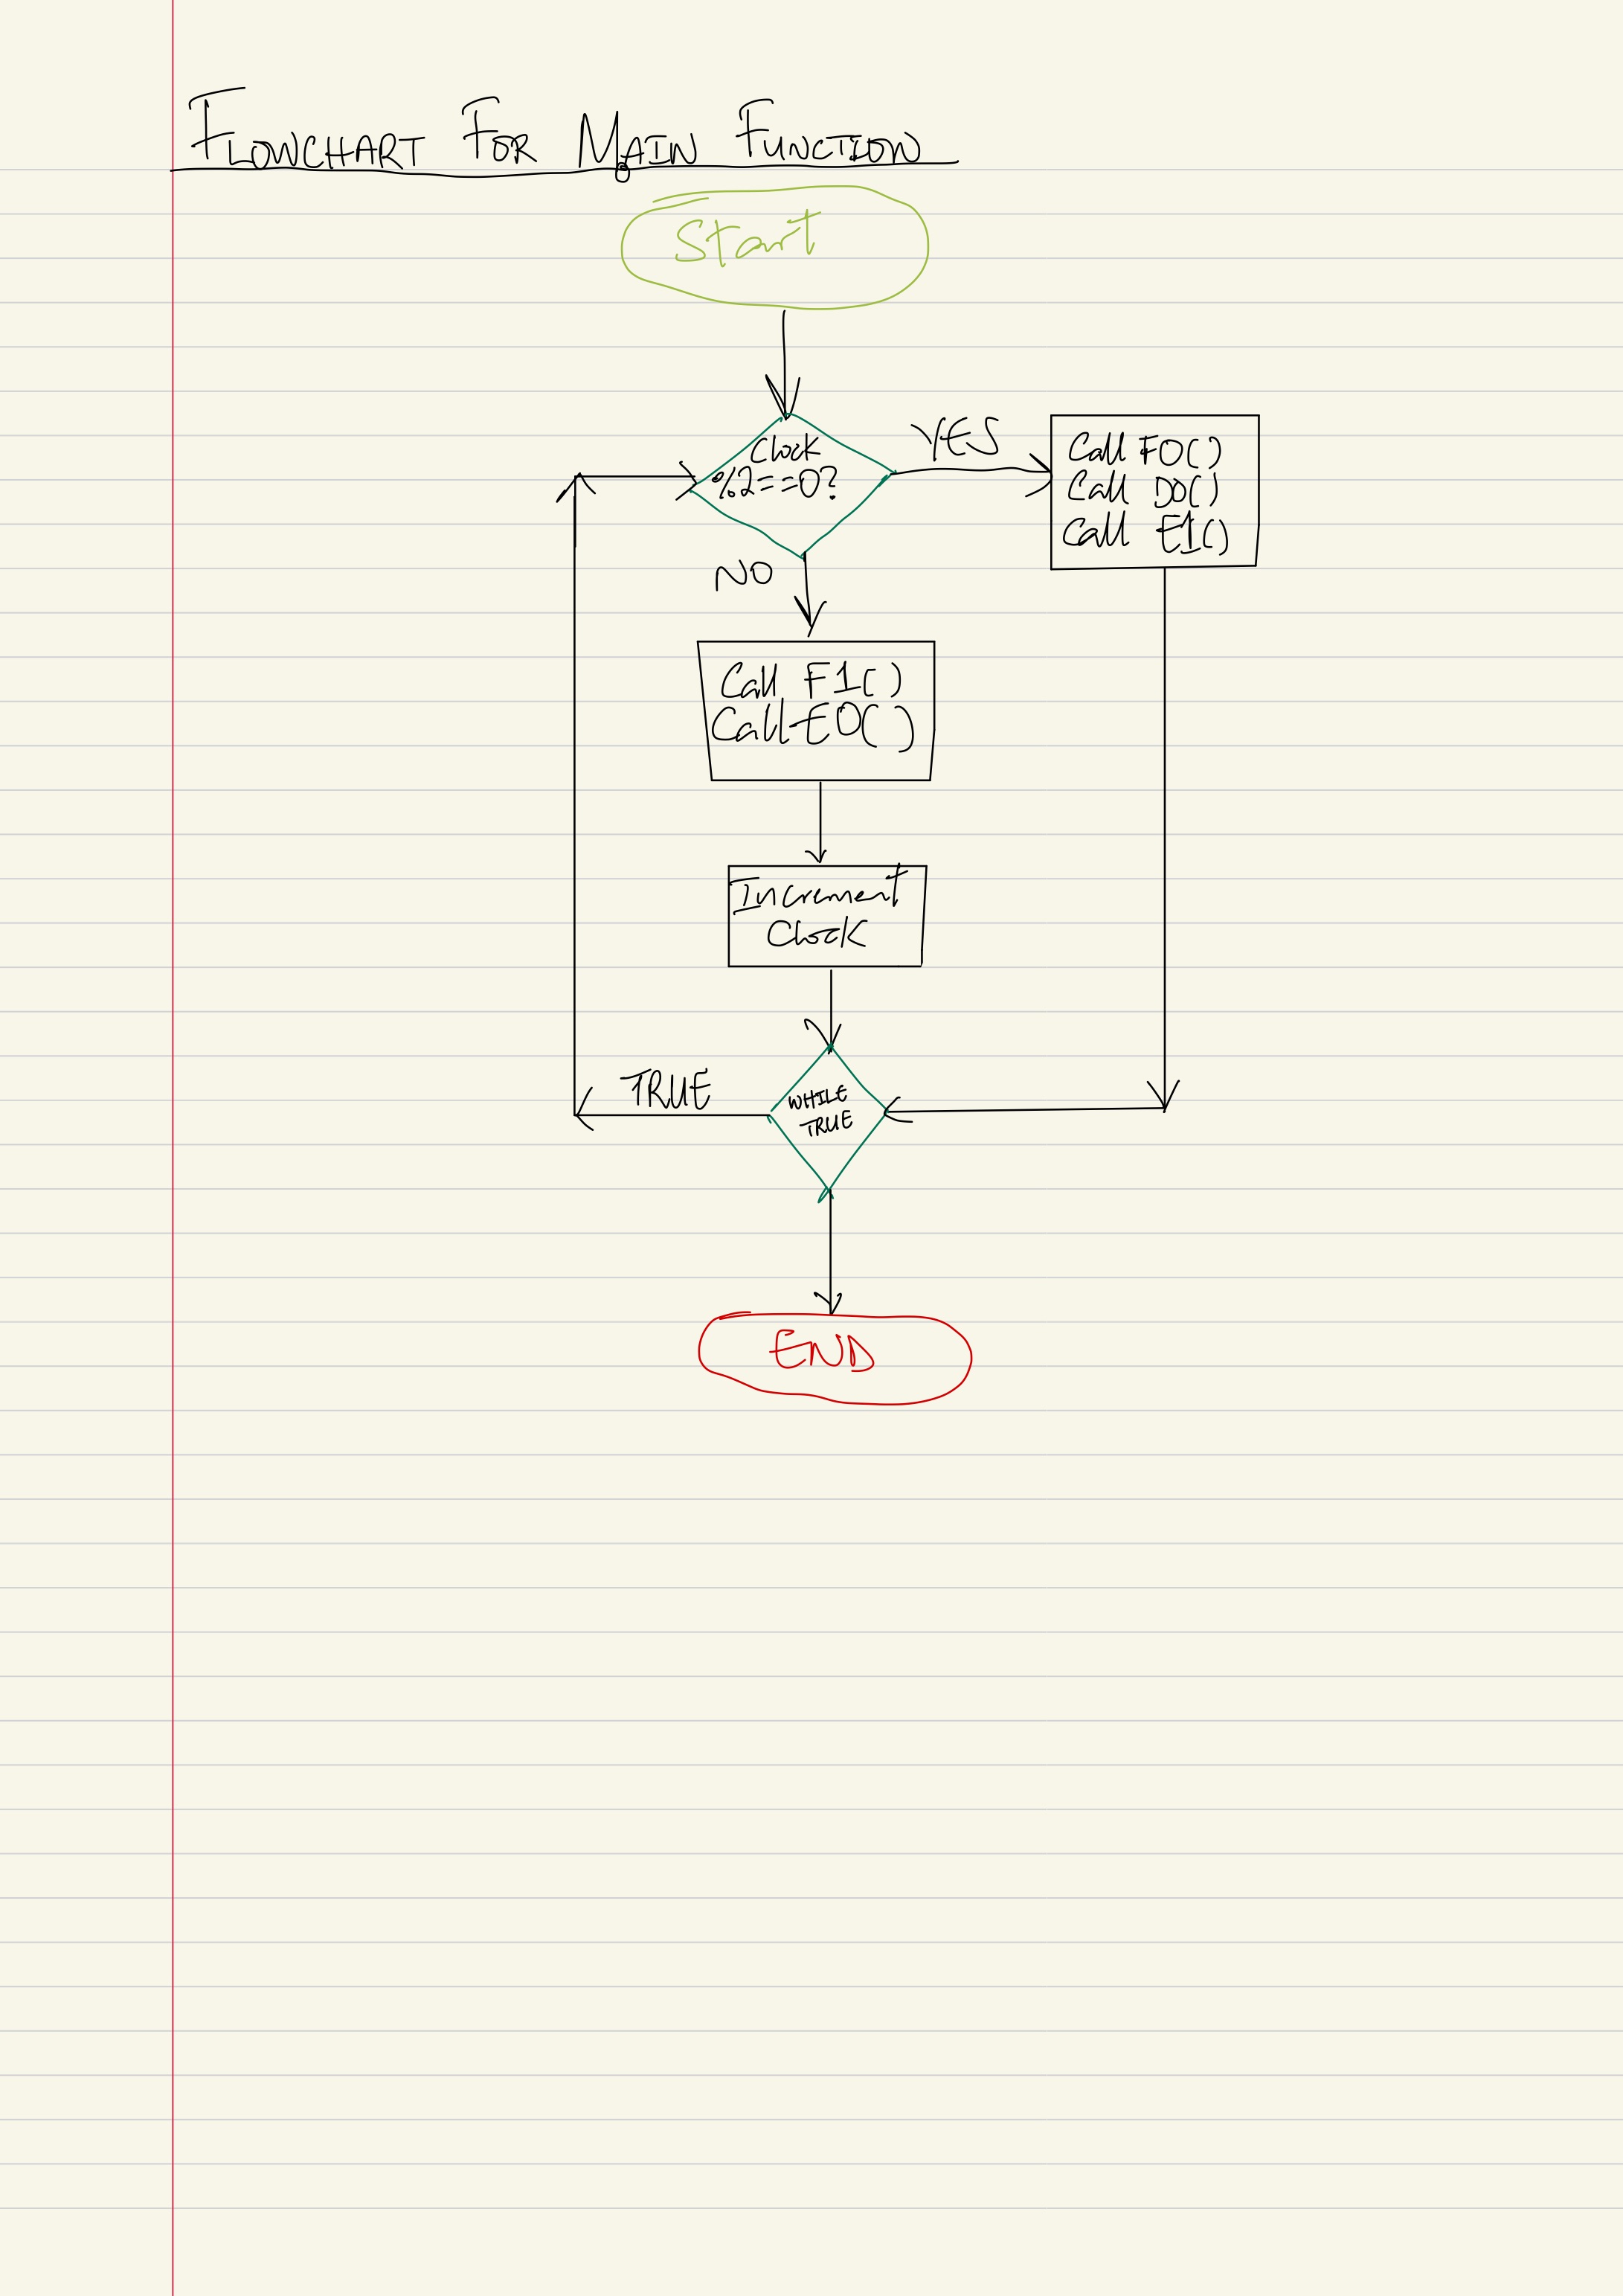 FLOWCHART FOR MAIN FUNCTION
Start
Clock
%2==0?
YES
Call F0()
Call D0()
Call E1()
NO
Call F1()
Call E0()
Increment
Clock
TRUE
WHILE
TRUE
END